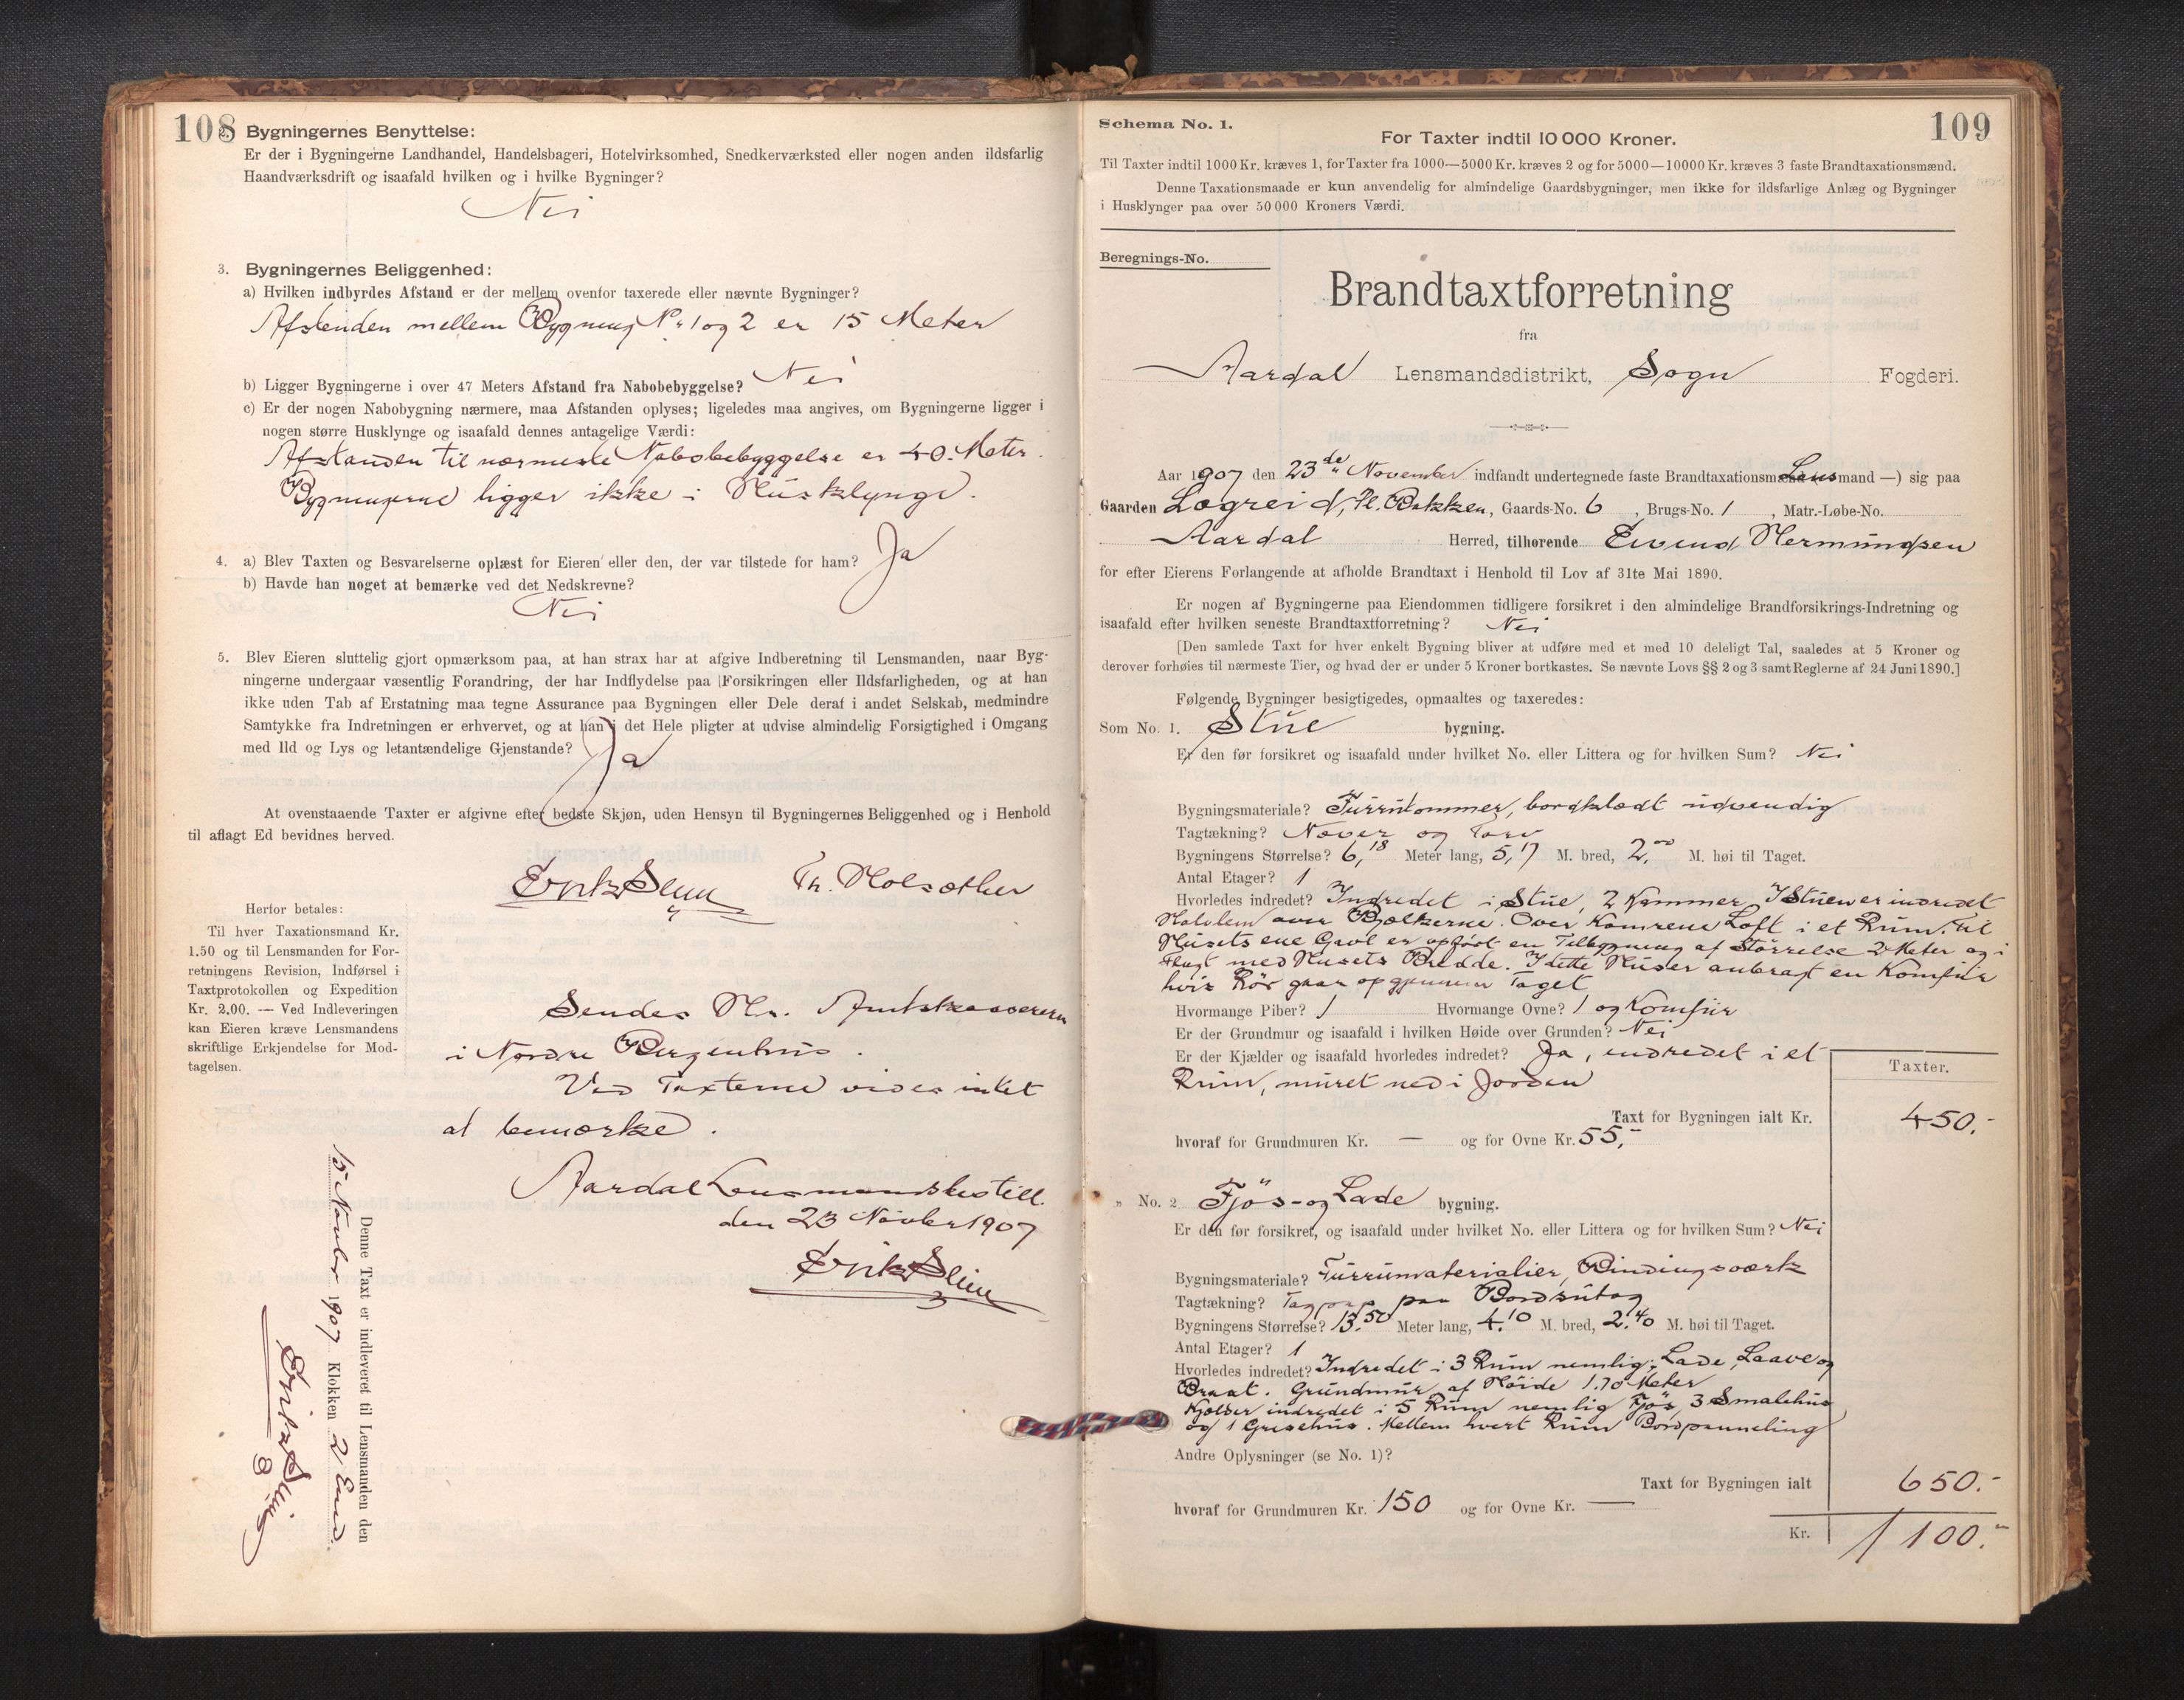 108
Bygningernes Benyttelse:
Er der i Bygningerne Landhandel, Handelsbageri, Hotelvirksomhed, Snedkerværksted eller nogen anden ildsfarlig
Haandværksdrift og isaafald hvilken og i hvilke Bygninger?
Nei
3. Bygningernes Beliggenhed:
a) Hvilken indbyrdes Afstand er der mellem ovenfor taxerede eller nævnte Bygninger?
Afstanden mellem Bygning No 1 og 2 er 15 Meter
b) Ligger Bygningerne i over 47 Meters Afstand fra Nabobebyggelse? Nei
c) Er der nogen Nabobygning nærmere, maa Afstanden oplyses; ligeledes maa angives, om Bygningerne ligger i
nogen større Husklynge og isaafald dennes antagelige Værdi:
Afstanden til nærmeste Nabobebyggelse er 40. Meter.
Bygningerne ligger ikke i Husklynge.
4. a) Blev Taxten og Besvarelserne oplæst for Eieren eller den, der var tilstede for ham? Ja
b) Havde han noget at bemærke ved det Nedskrevne?
Nei
5. Blev Eieren sluttelig gjort opmærksom paa, at han strax har at afgive Indberetning til Lensmanden, naar Byg-
ningerne undergaar væsentlig Forandring, der har Indflydelse paa Forsikringen eller Ildsfarligheden, og at han
ikke uden Tab af Erstatning maa tegne Assurance paa Bygningen eller Dele deraf i andet Selskab, medmindre
Samtykke fra Indretningen er erhvervet, og at han i det Hele pligter at udvise almindelig Forsigtighed i Omgang
med Ild og Lys og letantændelige Gjenstande?
Ja
At ovenstaaende Taxter er afgivne efter bedste Skjøn, uden Hensyn til Bygningernes Beliggenhed og i Henhold
til aflagt Ed bevidnes herved.
Th. Holsæther
Herfor betales:
Til hver Taxationsmand Kr.
1.50 og til Lensmanden for For-
retningens Revision, Indførsel i
Taxtprotokollen og Expedition
Kr. 2.00. — Ved Indleveringen
kan Eieren kræve Lensmandens
skriftlige Erkjendelse for Mod-
tagelsen.
Sendes Hr. Amtskassereren
i Nordre Bergenhus.
Ved Taxterne vides intet
at bemærke.
Aardal Lensmandsbestill.
den 23 Novber 1907
Denne Taxt er indleveret til Lensmanden den
15 Novber 1907 Klokken 2 Emd.
109
Schema No. 1.
For Taxter indtil 10 000 Kroner.
Til Taxter indtil 1000 Kr. kræves 1, for Taxter fra 1000—5000 Kr. kræves 2 og for 5000—10000 Kr. kræves 3 faste Brandtaxationsmænd.
Denne Taxationsmaade er kun anvendelig for almindelige Gaardsbygninger, men ikke for ildsfarlige Anlæg og Bygninger
i Husklynger paa over 50 000 Kroners Værdi.
Beregnings-No.
Brandtaxtforretning
fra
Aardal Lensmandsdistrikt, Sogn Fogderi.
Aar 1907 den 23de November indfandt undertegnede faste Brandtaxationsmænd Lensmand —) sig paa
Gaarden Lægreid, Pl. Bakken, Gaards-No. 6, Brugs-No. 1, Matr.-Løbe-No.
Aardal Herred, tilhørende Eivend Hermundsen
for efter Eierens Forlangende at afholde Brandtaxt i Henhold til Lov af 31te Mai 1890.
Er nogen af Bygningerne paa Eiendommen tidligere forsikret i den almindelige Brandforsikrings-Indretning og
isaafald efter hvilken seneste Brandtaxtforretning? Nei
[Den samlede Taxt for hver enkelt Bygning bliver at udføre med et med 10 deleligt Tal, saaledes at 5 Kroner og
derover forhøies til nærmeste Tier, og hvad der er under 5 Kroner bortkastes. Se nævnte Lovs §§ 2 og 3 samt Reglerne af 24 Juni 1890.]
Følgende Bygninger besigtigedes, opmaaltes og taxeredes:
Som No. 1. Stue bygning.
Er den før forsikret og isaafald under hvilket No. eller Littera og for hvilken Sum? Nei
Bygningsmateriale? Furrutømmer, bordklædt udvendig
Tagtækning? Næver og Torv
Bygningens Størrelse? 6,18 Meter lang, 5,17 M. bred, 2,00 M. høi til Taget.
Antal Etager? 1
Hvorledes indredet? Indredet i Stue, 2 Kammer. I Stuen er indredet
Halvlem over Bjælkerne. Over Kamrene Loft i et Rum. Til
Husets ene Gavl er opført en Tilbygning af Størrelse 2 Meter og i
Flugt med Husets Bredde. I dette Hus er anbragt en Komfur
hvis Rör gaar op gjennem Taget
Hvormange Piber? 1 Hvormange Ovne? 1 og Komfur
Er der Grundmur og isaafald i hvilken Høide over Grunden? Nei
Er der Kjælder og isaafald hvorledes indredet? Ja, indredet i et
Rum, muret ned i Jorden
Taxter.
Taxt for Bygningen ialt Kr. 450.-
hvoraf for Grundmuren Kr. — og for Ovne Kr. 55,-
„ No. 2 Fjös- og Lade bygning.
Er den før forsikret, og isaafald under hvilket No. eller Littera og for hvilken Sum? Nei
Bygningsmateriale? Furrumaterialier, Bindingsværk
Tagtækning? Tagpap paa Bordsutag
Bygningens Størrelse? 13.50 Meter lang, 4.10 M. bred, 2.40 M. høi til Taget.
Antal Etager? 1
Hvorledes indredet? Indredet i 3 Rum nemlig: Lade, Laave og
Braat. Grundmur af Höide 1.70 Meter
Kjælder indredet i 5 Rum nemlig Fjös, 3 Smalehus
og 1 Grisehus. Mellem hvert Rum Bordpanneling
Andre Oplysninger (se No. 1)?
Taxt for Bygningen ialt 650.-
hvoraf for Grundmuren Kr. 150 og for Ovne Kr. —
Kr. 1100.-